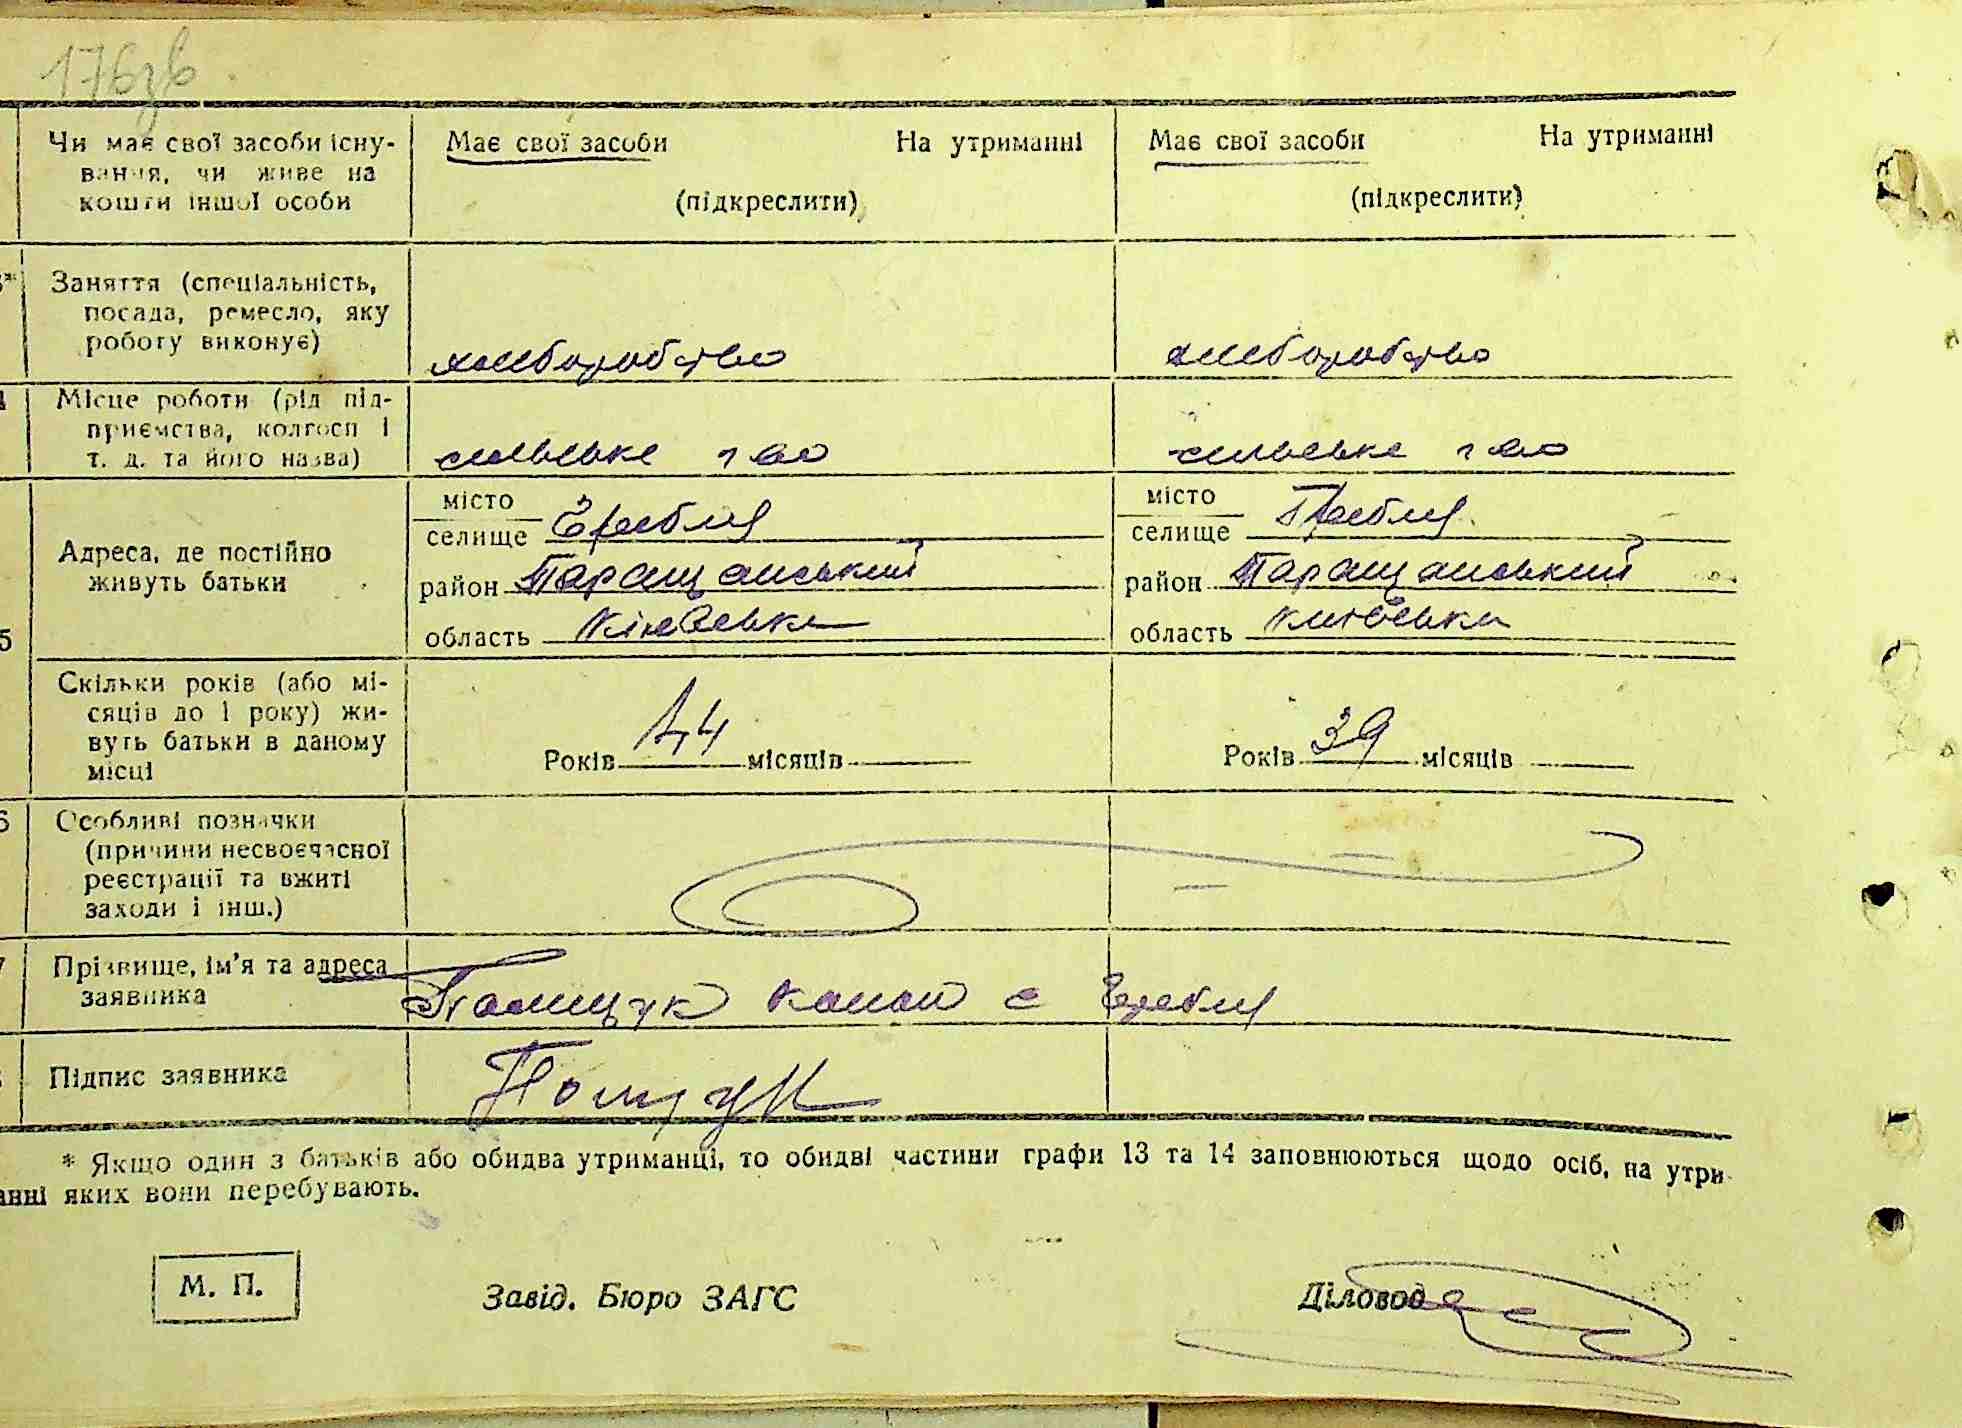 176зв
Чи має свої засоби існу-
вання, чи живе на
кошти іншої особи
Має свої засоби На утриманні
(підкреслити)
Має свої засоби На утриманні
(підкреслити)
Заняття (спеціальність,
посада, ремесло, яку
роботу виконує)
хліборобство
хліборобство
Місце роботи (рід під-
приємства, колгосп і
т. д. та його назва)
сільське г-во
сільське г-во
Адреса, де постійно
живуть батьки
місто
селище Гребля
район Таращанський
область Київська
місто
селище Гребля
район Таращанський
область Київська
Скільки років (або мі-
сяців до 1 року) жи-
вуть батьки в даному
місці
Років 44 місяців
Років 39 місяців
6 Особливі позначки
(причини несвоєчасної
реєстрації та вжиті
заходи і інш.)
7 Прізвище, ім'я та адреса
заявника
Поліщук с Гребля
Підпис заявника
Поліщук
* Якщо один з батьків або обидва утриманці, то обидві частини графи 13 та 14 заповнюються щодо осіб, на утри-
анні яких вони перебувають.
М. П.
Завід. Бюро ЗАГС
Діловод